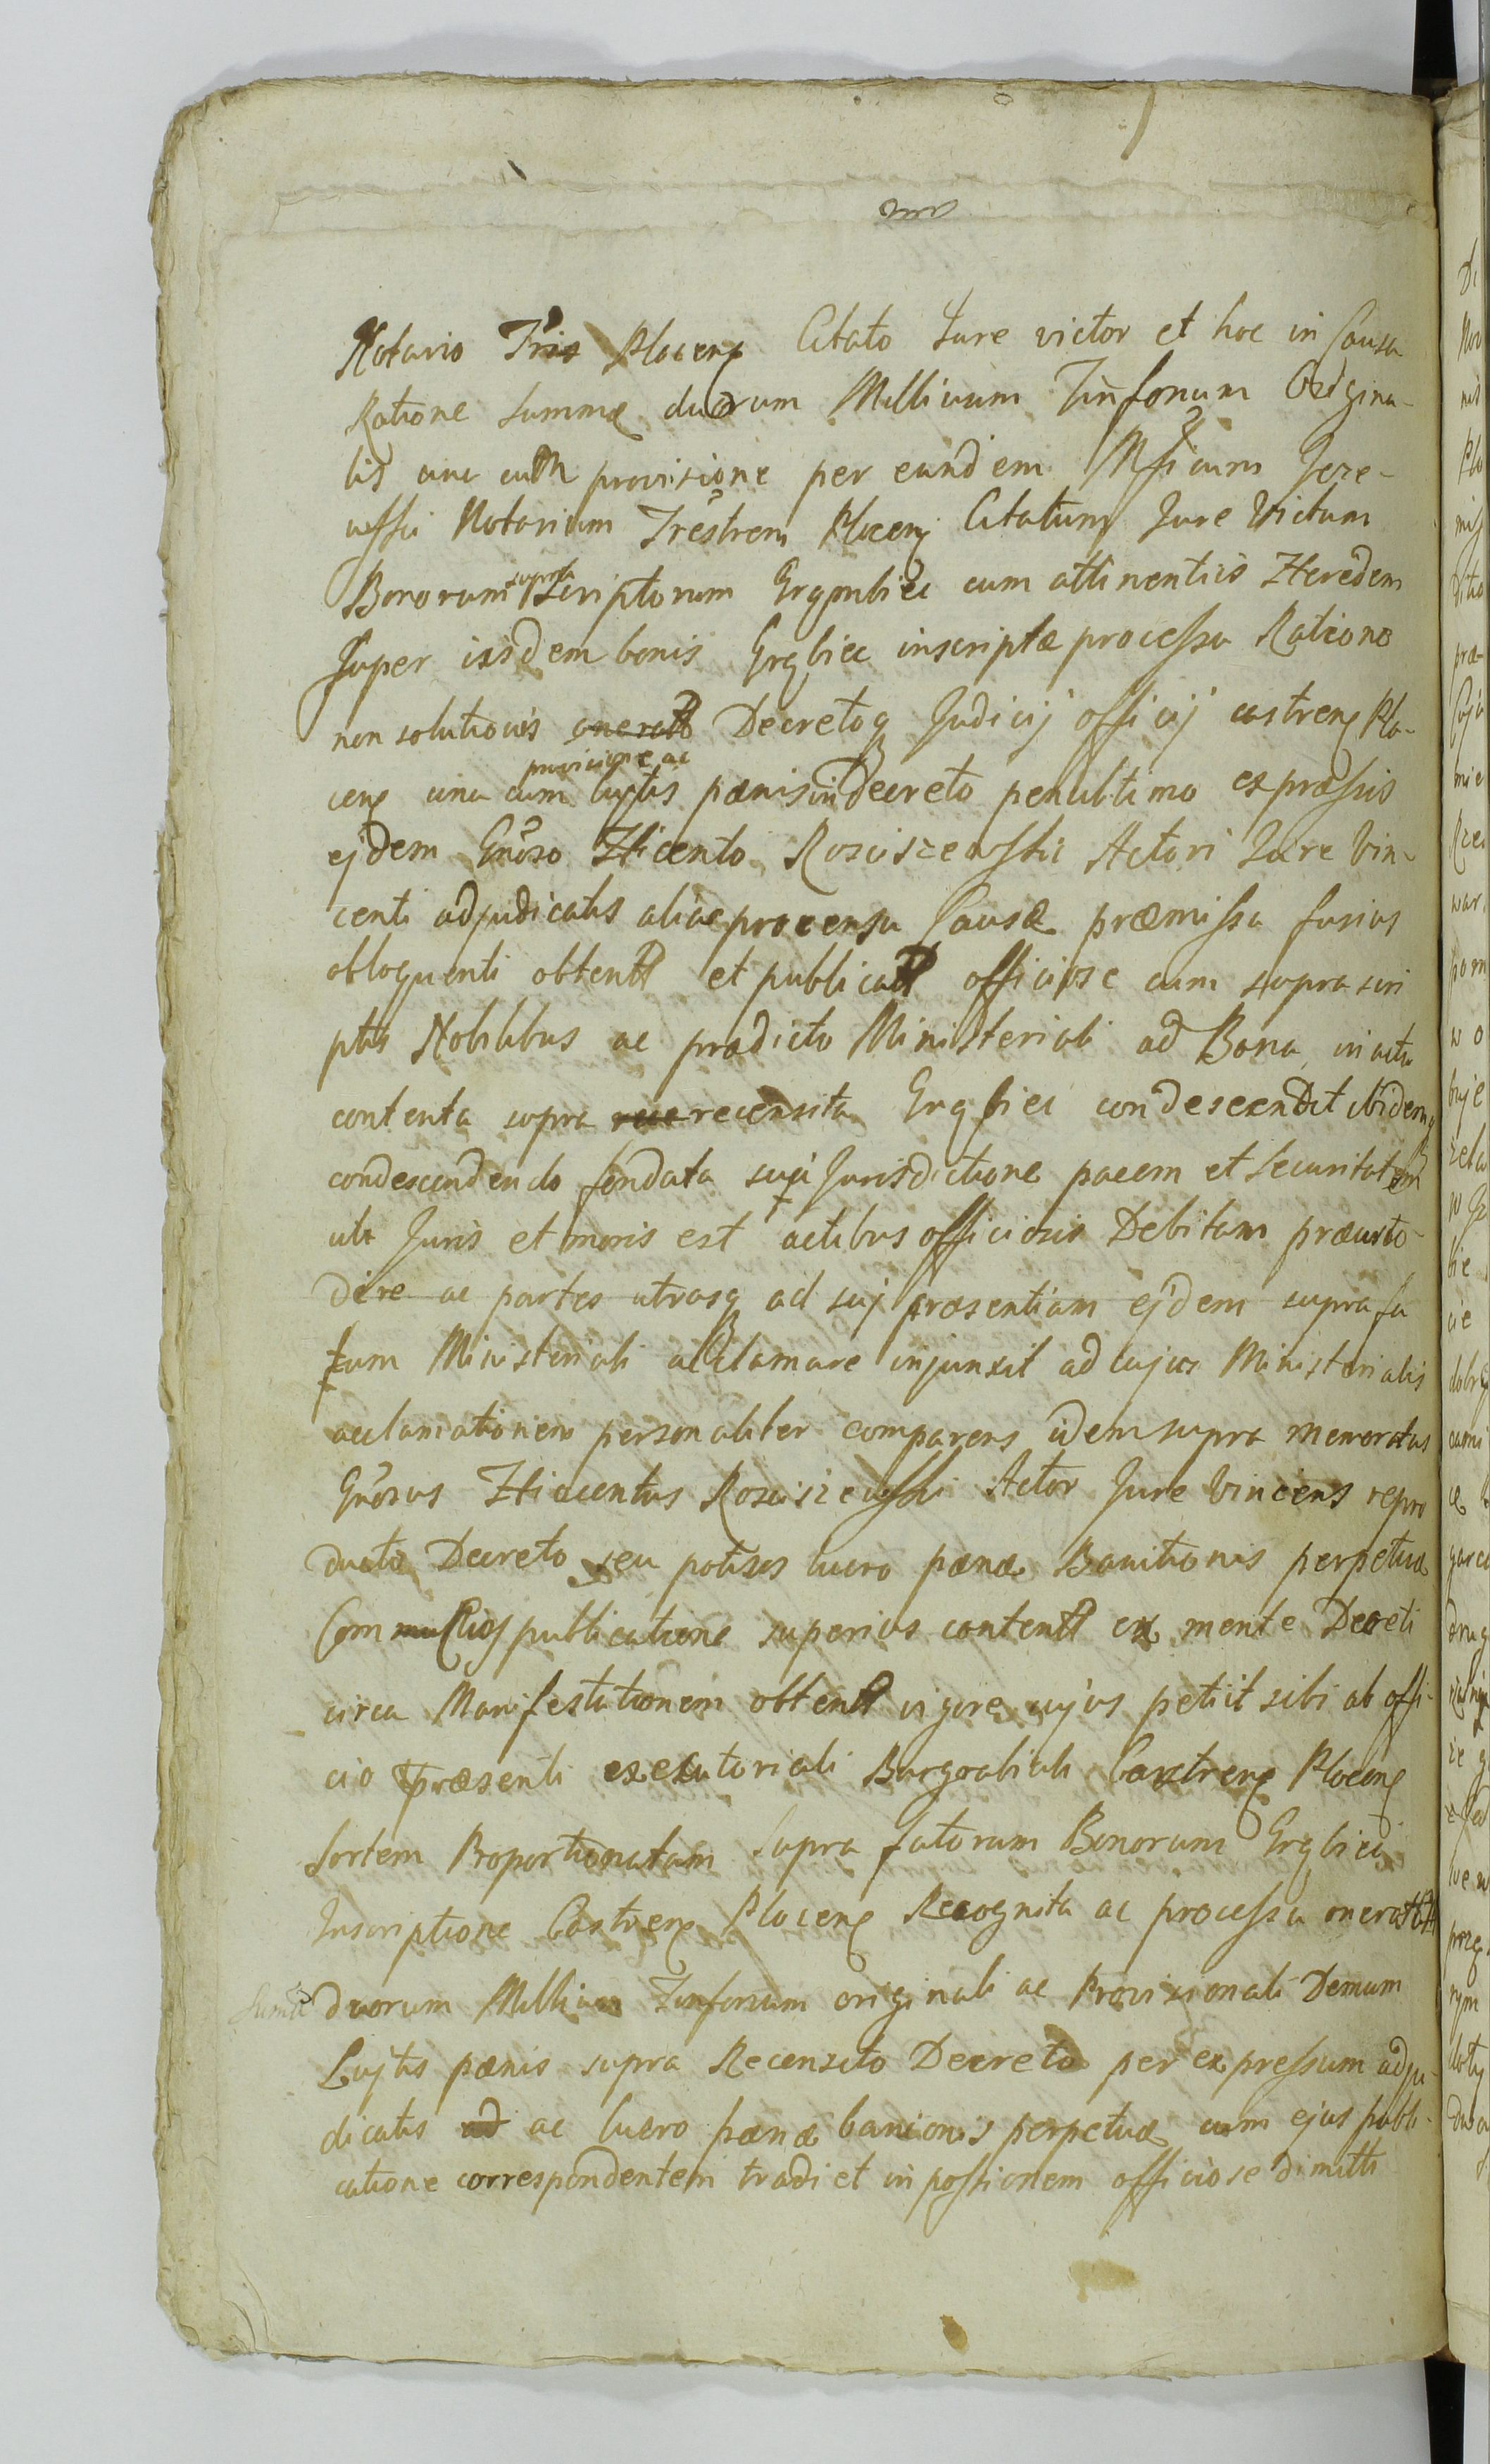 Notario Tris Plocenς Citato Jure victor et hoc in Causa
Ratione Summæ duorum Millium Tinfonum Origina-
lis una cum provisione per eundem Mficum Jeze-
wski Notarium Trestrem Plocenς Citatum Jure Victum
Bonorum supra Scriptorum Grąmbiec cum attinentiis Heredem
Super iisdem bonis Grąbiec inscriptæ processu Ratione
non solutionis onerata Decretoq Judicij officij castrenς Plo-
cenς una cum provisione ac lujtis pænis in Decreto penultimo expræssis
ejdem Gnoso Hicento Rosciszewski Actori Jure Vin-
centi adjudicatis aliae processu Causæ præmissa fusius
obloquenti obtent et publicat officiose cum suprascri
ptis Nobilibus ac prædicto Ministeriali ad Bona in actu
contenta supra recensita Grąbiec condescendit ibidemq
condescendendo fundata sui Jurisdictione pacem et Securitatem
uti Juris et moris est actibus officiosis Debitam præcusto-
dire ac partes utrasq ad suj præsentiam ejdem suprafa
tum Ministeriali acclamare injunxit ad cujus Ministerialis
acclamationem personaliter comparens idem supra memoratus
Gnosus Hiacentus Rosciszewski Actor Jure Vincens repro
ducto Decreto seu potius lucro pænæ Banitionis perpetuæ
Cum publicatione superius content ex mente Decreti
circa Manifestationem obtent vigore cujus petiit sibi ab offi-
cio præsenti exekutoriali Burgrabiali Castrenς Plocenς
Sortem Proportionatam supra fatorum Bonorum Grąbiec
Inscriptione Castrenς Plocenς Recognita ac processu onerat
Summa duorum Millium Tinfonum originali ac Provisionali Demum
Lujtis pænis supra Recensito Decreto per expressum adju-
dicatis ad ac lucro pænæ banionis perpetuæ cum ejus publi-
catione correspondentem tradi et in possionem officiose dimitti